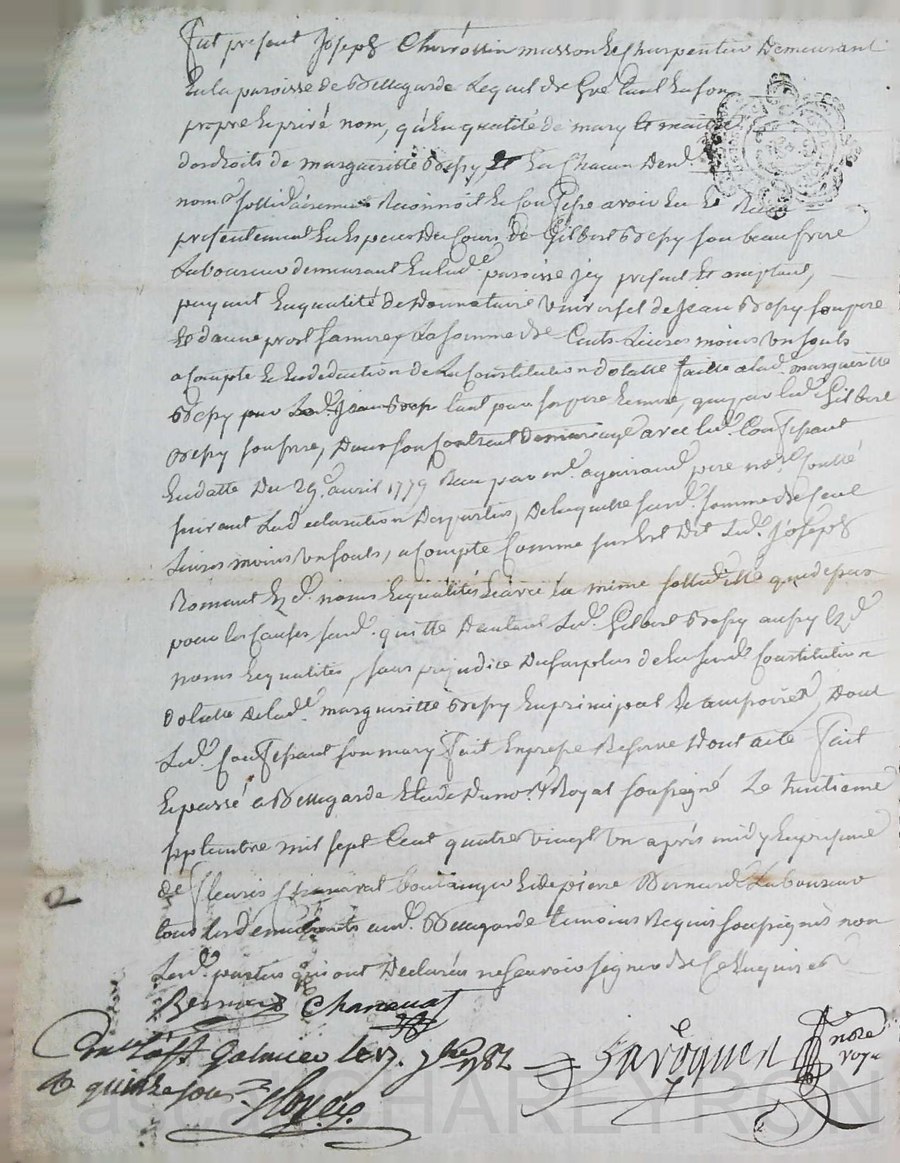 Fut present Joseph Charrottin masson & Charpentier Demeurant
En la paroisse de Bellegarde Lequel de Gré tant En son
propre & privé nom, qu'En qualité de mary & maitre
des droits de margueritte Brepy, & En Chacun Desd.
noms sollidairement Reconnoit & Confesse avoir Eu & Reçu
presentement En Especes Du Cours de Gilbert Brepy son beau frere
Laboureur demeurant En lad. paroisse jcy present & acceptant,
payant En qualité de Donnataire Universel de Jean Brepy son pere
La somme de Cents Livres moins Un souls
a Compte & En deduction de La Constitution dotalle faitte a lad. margueritte
Brepy par Led. Jean Brepy tant pour son pere & mere, que par led. Gilbert
Brepy son frere, Dans son Contrat de mariage avec led. Confessant
En datte Du 29. avril 1779 Reçu par me. pere nore. Controllé
suivant La declaration Des parties, De laquelle surd. somme de Cent
Livres moins Un souls, a Compte Comme susd. Est Dit Led. Joseph
Esd. noms & qualités & avec la même sollidité que dessus
pour les Causes surd. quitte D'autant Led. Gilbert Brepy aussy Esd.
noms & qualités, sans prejudice Du surplus de la surd. Constitution
Dotalle De lad. margueritte Brepy En principal & accessoires, Dont
Led. Confessant son mary fait Expresse Reserve Dont acte fait
& passé a Bellegarde Etude Du nore. Royal soussigné Le huitieme
septembre mil sept Cent quatre vingt Un après midy En presence
de Fleuris Chanavat boulanger & de pierre Bernard Laboureur
tous les deux demeurants aud. Bellegarde temoins Requis soussignés non
Lesd. parties qui ont Declarées ne sçavoir signer de Ce Enquises
Bernard Chanavat
Galmier le 17. 7bre 1781
quinze sous
nore
roya
2
Pascal CHARLEYRON